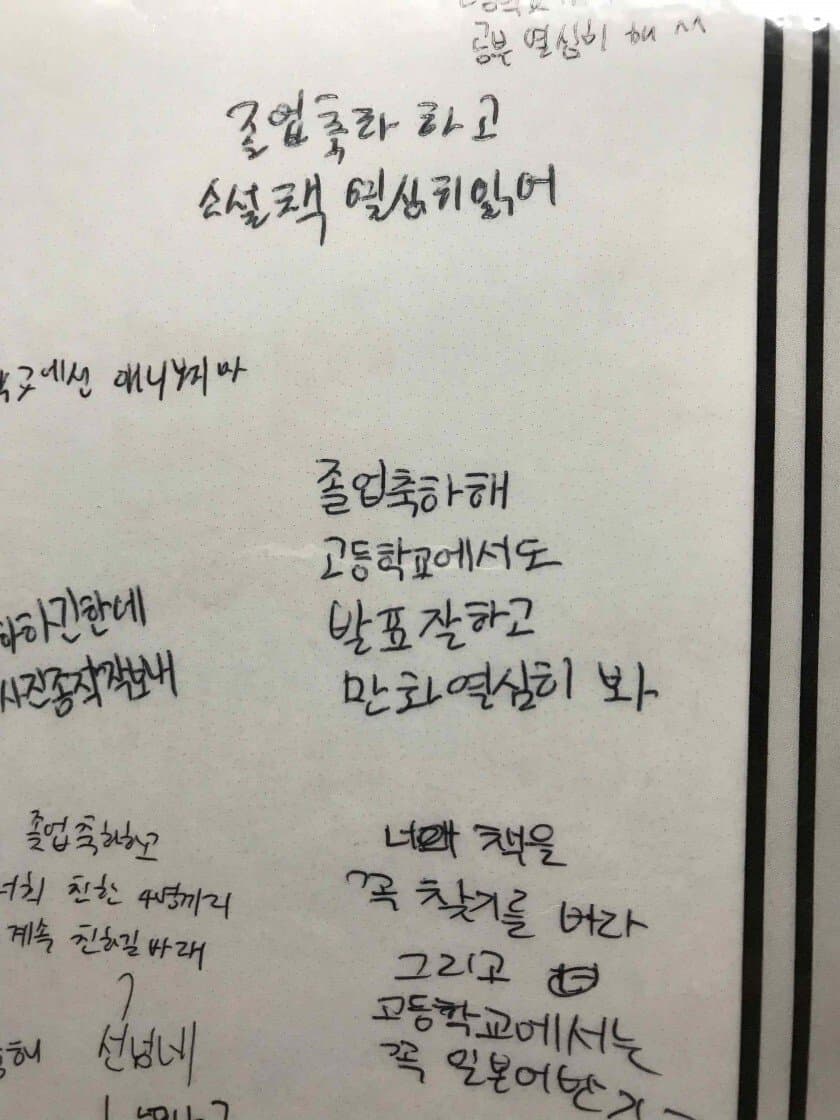 공부 열심히 해 ^^
졸업축하 하고
소설책 열심히읽어
교에선 애니보지마
졸업축하해
고등학교에서도
발표잘하고
만화열심히 봐
하긴한데
사진좀작작보내
졸업축하하고
너희 친한 4명끼리
계속 친하길바래
너의 책을
꼭 찾기를 바라
그리고
고등학교에서는
꼭 일본어반